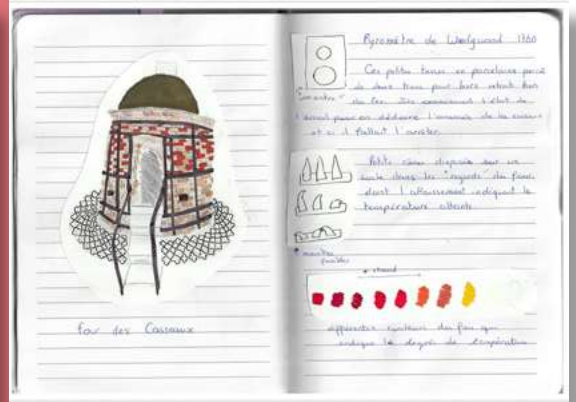 four des Casseaux
Pyromètre de Wedgwood 1780
Ces petites tasses en porcelaine percé
de deux trous pour leurs retrait hors
du feu. Ils
l'émail pour en déduire l'avancée de la cuisson
et si il fallait l'arrêter.
"montre"
Petits cônes disposés sur un
socle dans les "regards" du four,
dont l'affaissement indiquait la
température atteinte.
* montres
fusibles
+ chaud
différentes couleurs du feu qui
indique le degrés de température